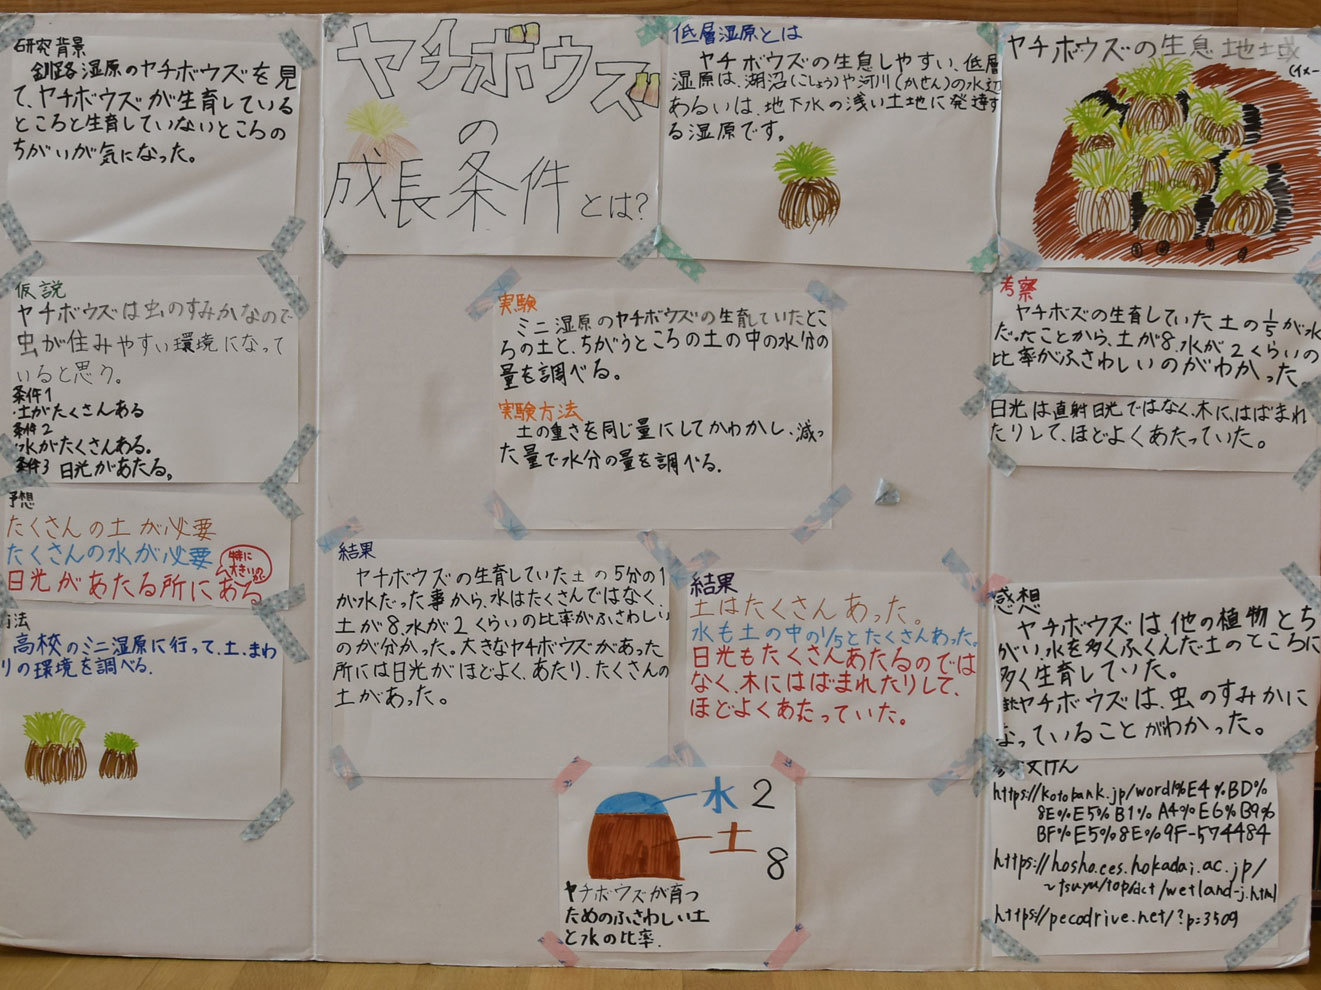 研究背景
釧路湿原のヤチボウズを見
て、ヤチボウズが生育している
ところと生育していないところの
ちがいが気になった。
仮説
ヤチボウズは虫のすみかなので
虫が住みやすい環境になって
いると思う。
条件1
・土がたくさんある
条件2
・水がたくさんある。
条件3 日光があたる。
予想
たくさんの土が必要
たくさんの水が必要
日光があたる所にある
特に
大きいのは
方法
高校のミニ湿原に行って、土、まわ
りの環境を調べる。
ヤチボウズ
の
成長条件とは?
低層湿原とは
ヤチボウズの生息しやすい、低層
湿原は、湖沼(こしょう)や河川(かせん)の水辺
あるいは、地下水の浅い土地に発達す
る湿原です。
実験
ミニ湿原のヤチボウズの生育していたとこ
ろの土と、ちがうところの土の中の水分の
量を調べる。
実験方法
土の重さを同じ量にしてかわかし、減っ
た量で水分の量を調べる。
結果
ヤチボウズの生育していた土の5分の1
が水だった事から、水はたくさんではなく、
土が8、水が2くらいの比率がふさわしい
のが分かった。大きなヤチボウズがあった
所には日光がほどよく、あたり、たくさんの
土があった。
結果
土はたくさんあった。
水も土の中の1/5とたくさんあった。
日光もたくさんあたるのでは
なく、木にはばまれたりして、
ほどよくあたっていた。
水 2
土
8
ヤチボウズが育つ
ためのふさわしい土
と水の比率.
ヤチボウズの生息地域
(イメー
考察
ヤチボズの生育していた土の1/5が水
だったことから、土が8、水が2くらいの
比率がふさわしいのがわかった。
日光は直射日光ではなく、木にはばまれ
たりして、ほどよくあたっていた。
感想
ヤチボウズは他の植物とち
がい、水を多くふくんだ土のところに
多く生育していた。
またヤチボウズは、虫のすみかに
なっていることがわかった。
参考文けん
https://kotobank.jp/word/%E4%BD%
8E%E5%B1%A4%E6%B9%
BF%E5%8E%9F-574484
https://hosho.ees.hokadai.ac.jp/
~tsuyu/top/dct/wetland-j.html
https://pecodrive.net/?p=3509